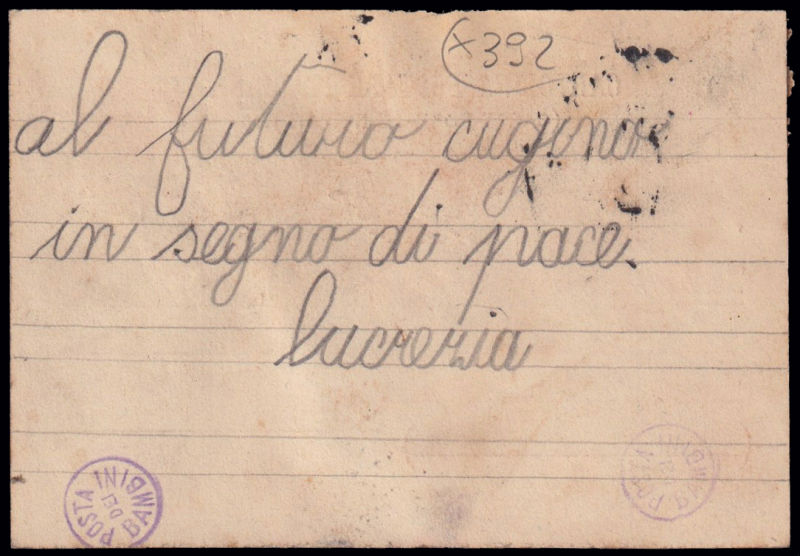 x392
al futuro cugino
in segno di pace.
lucrezia
POSTA DEI BAMBINI
POSTA DEI BAMBINI